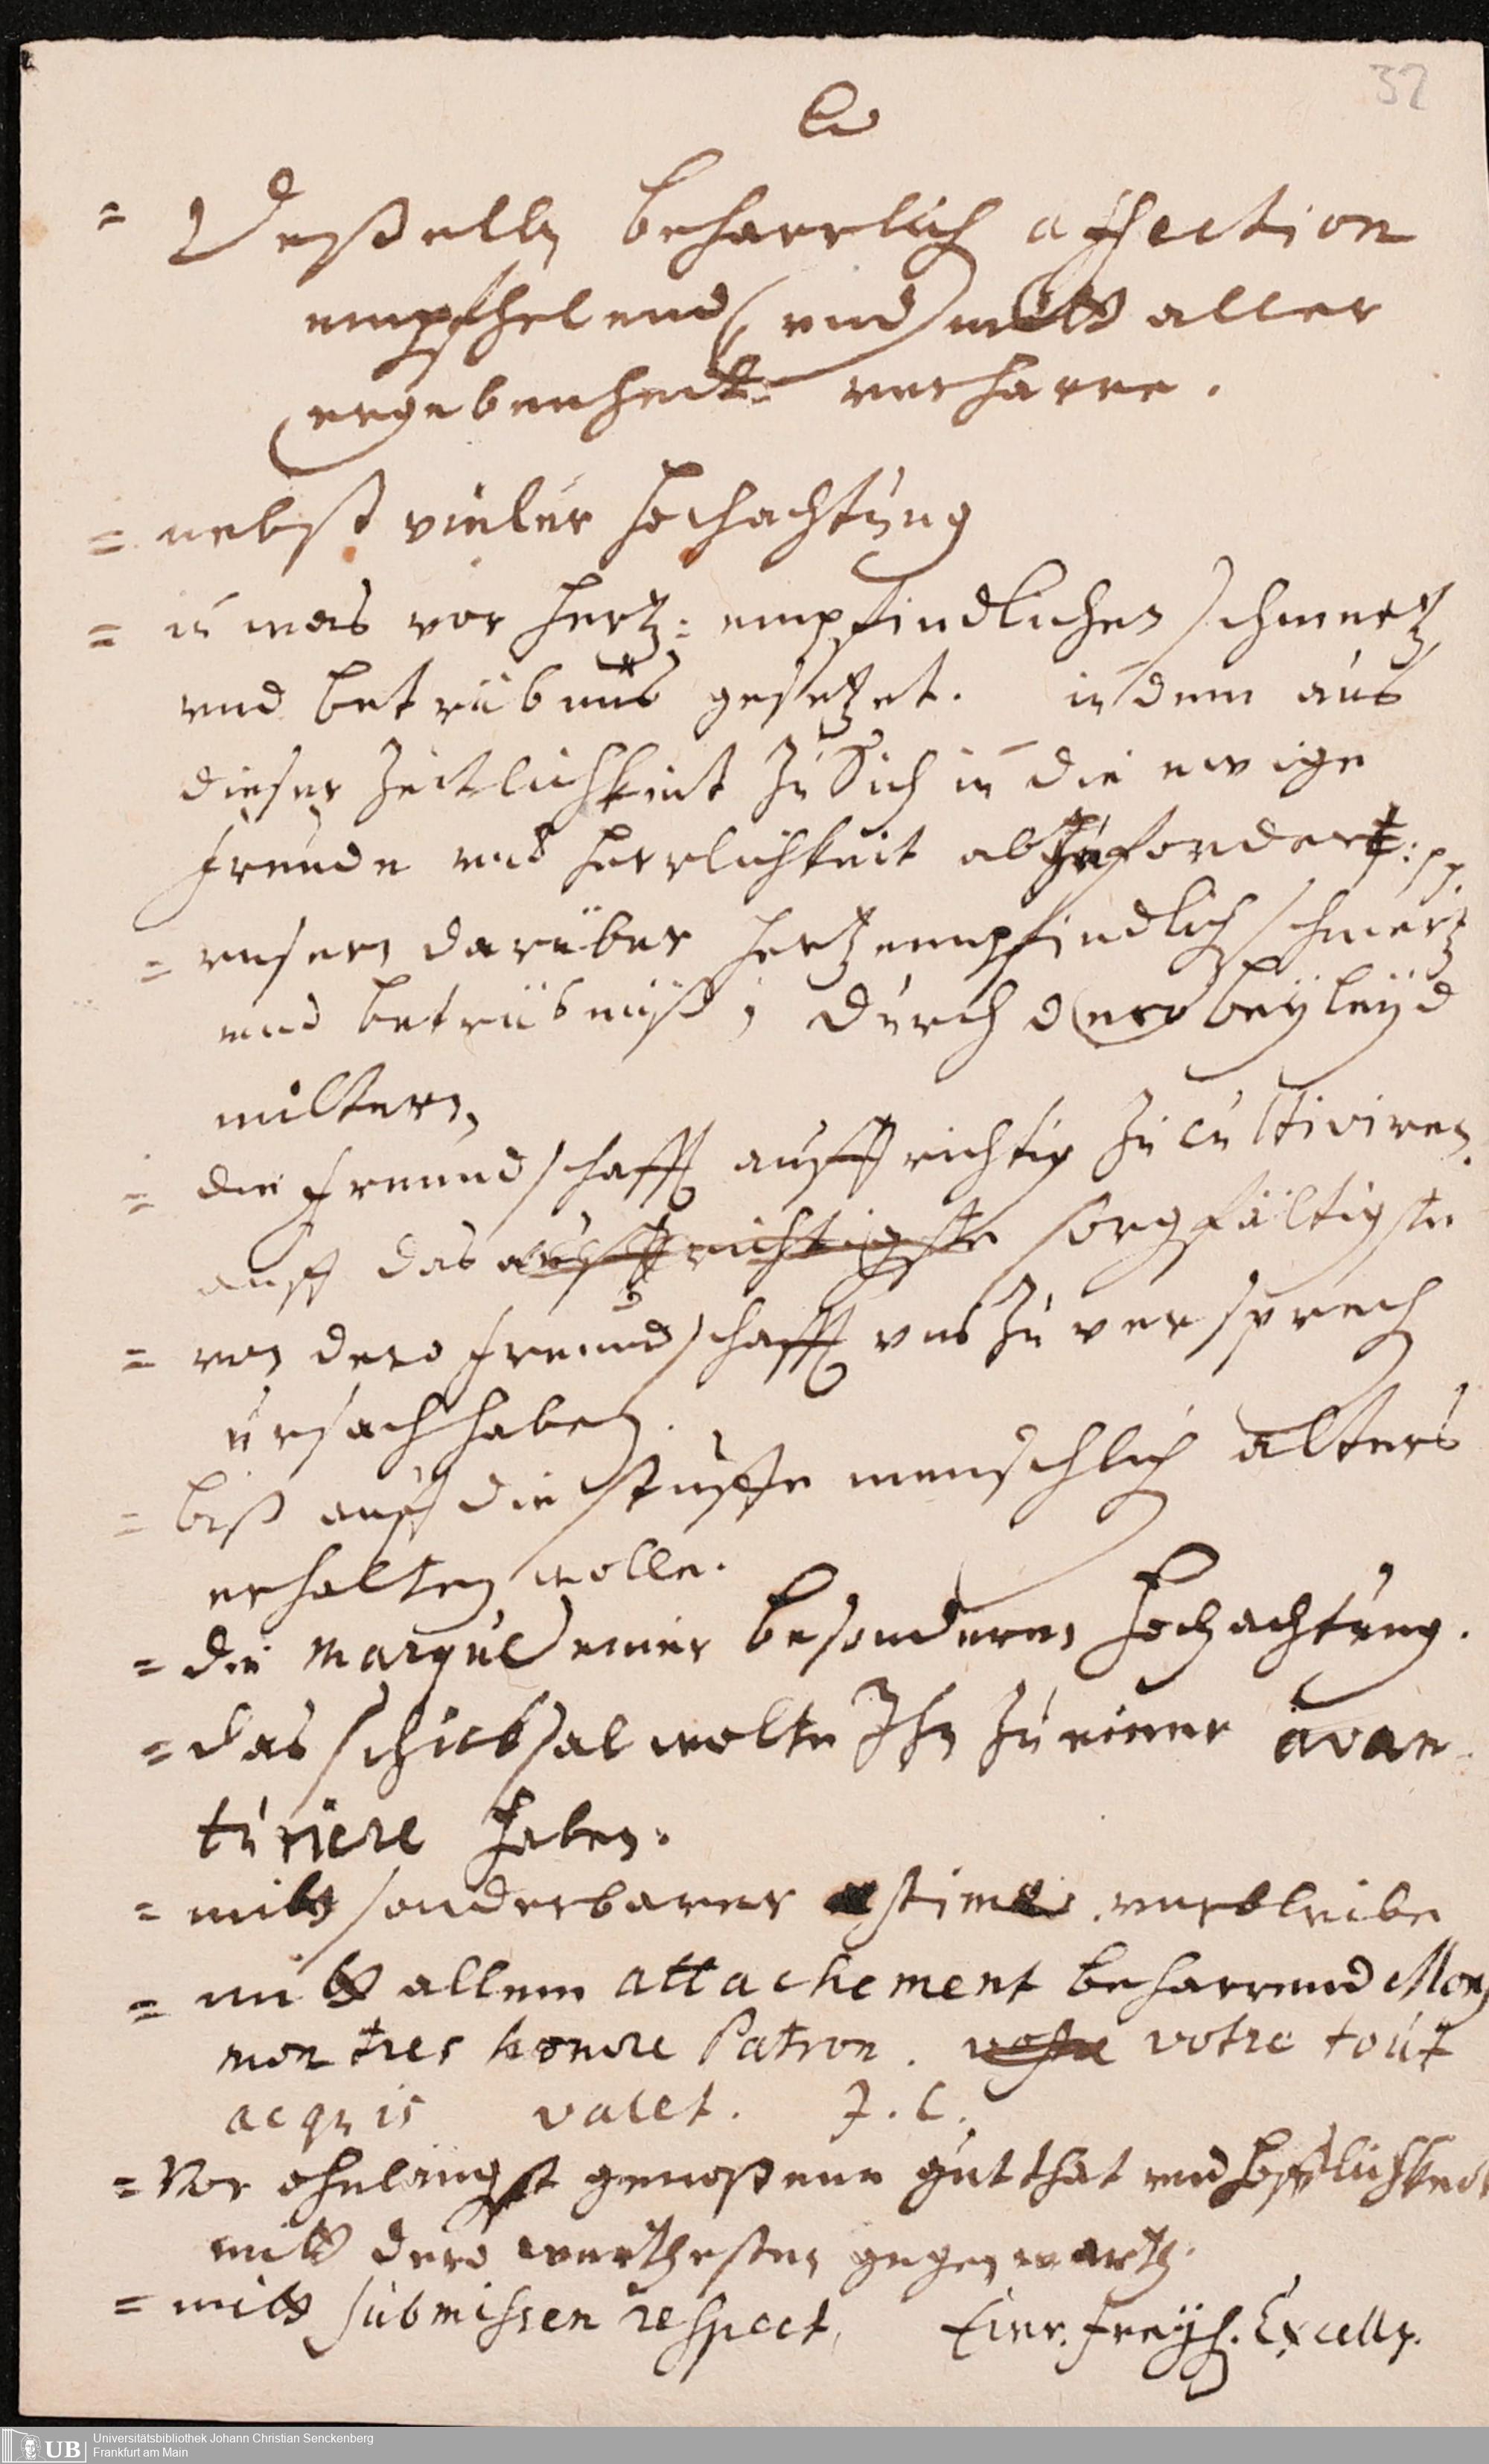 32
= beharrlich affection
empfhelend und mitt aller
ergebenheit verharre.
= nebst vieler hochachtung
= in was vor hertz: empfindlichen schmertz
und betrübnus gesetzet. in dem aus
dieser Zeitlichkeit zu Sich in die ewige
freude und herrlichkeit abzufordert: pp.
= unsern darüber hertzempfindlich schmertz
und betrübnüß, durch dero beÿleÿd
miltern,
= die freundschafft auffrichtig zu cultiviren.
auff das auffrichtigste sorgfältigste
= von dero freundschafft uns zu versprech
ursach haben.
= biß auff die stuffe menschlich alters
erhalten wolle.
= die marque einer besonderen hochachtung.
= das schicksal wolte Ihn zu einer avan
turiere haben.
= mitt sonderbarer estime verbleibe
= mitt allem attachement beharrend Mons
mon tres honore Patron. vostre votre tout
acquis valet. J. C.
= Vor ohnlängst genoßene gutthat und hofflichkeit
mitt dero werthesten gegenwarth.
= mitt submissen respect, Eiwr. freÿh. Excellz.
Universitätsbibliothek Johann Christian Senckenberg
Frankfurt am Main
UB